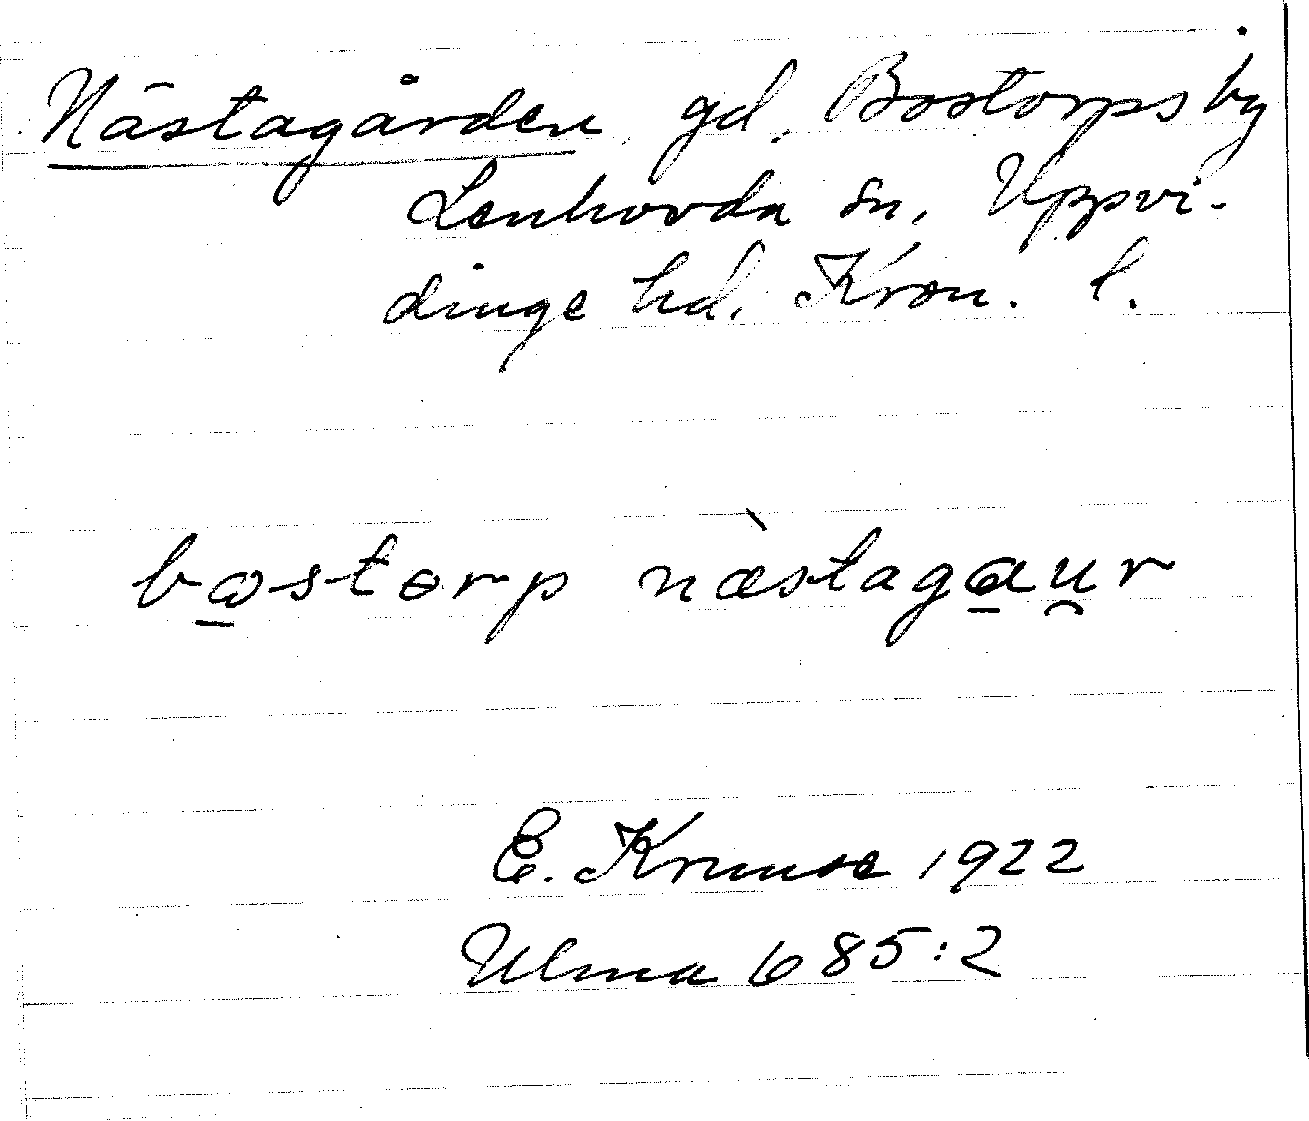 Nästagården, gd, Bostorps by
Lenhovda sn, Uppvi-
dinge hd. Kron. l.
bo̲stɵrp næ̀stagɑ̲u̯r
E. Kruuse 1922
Ulma 685:2